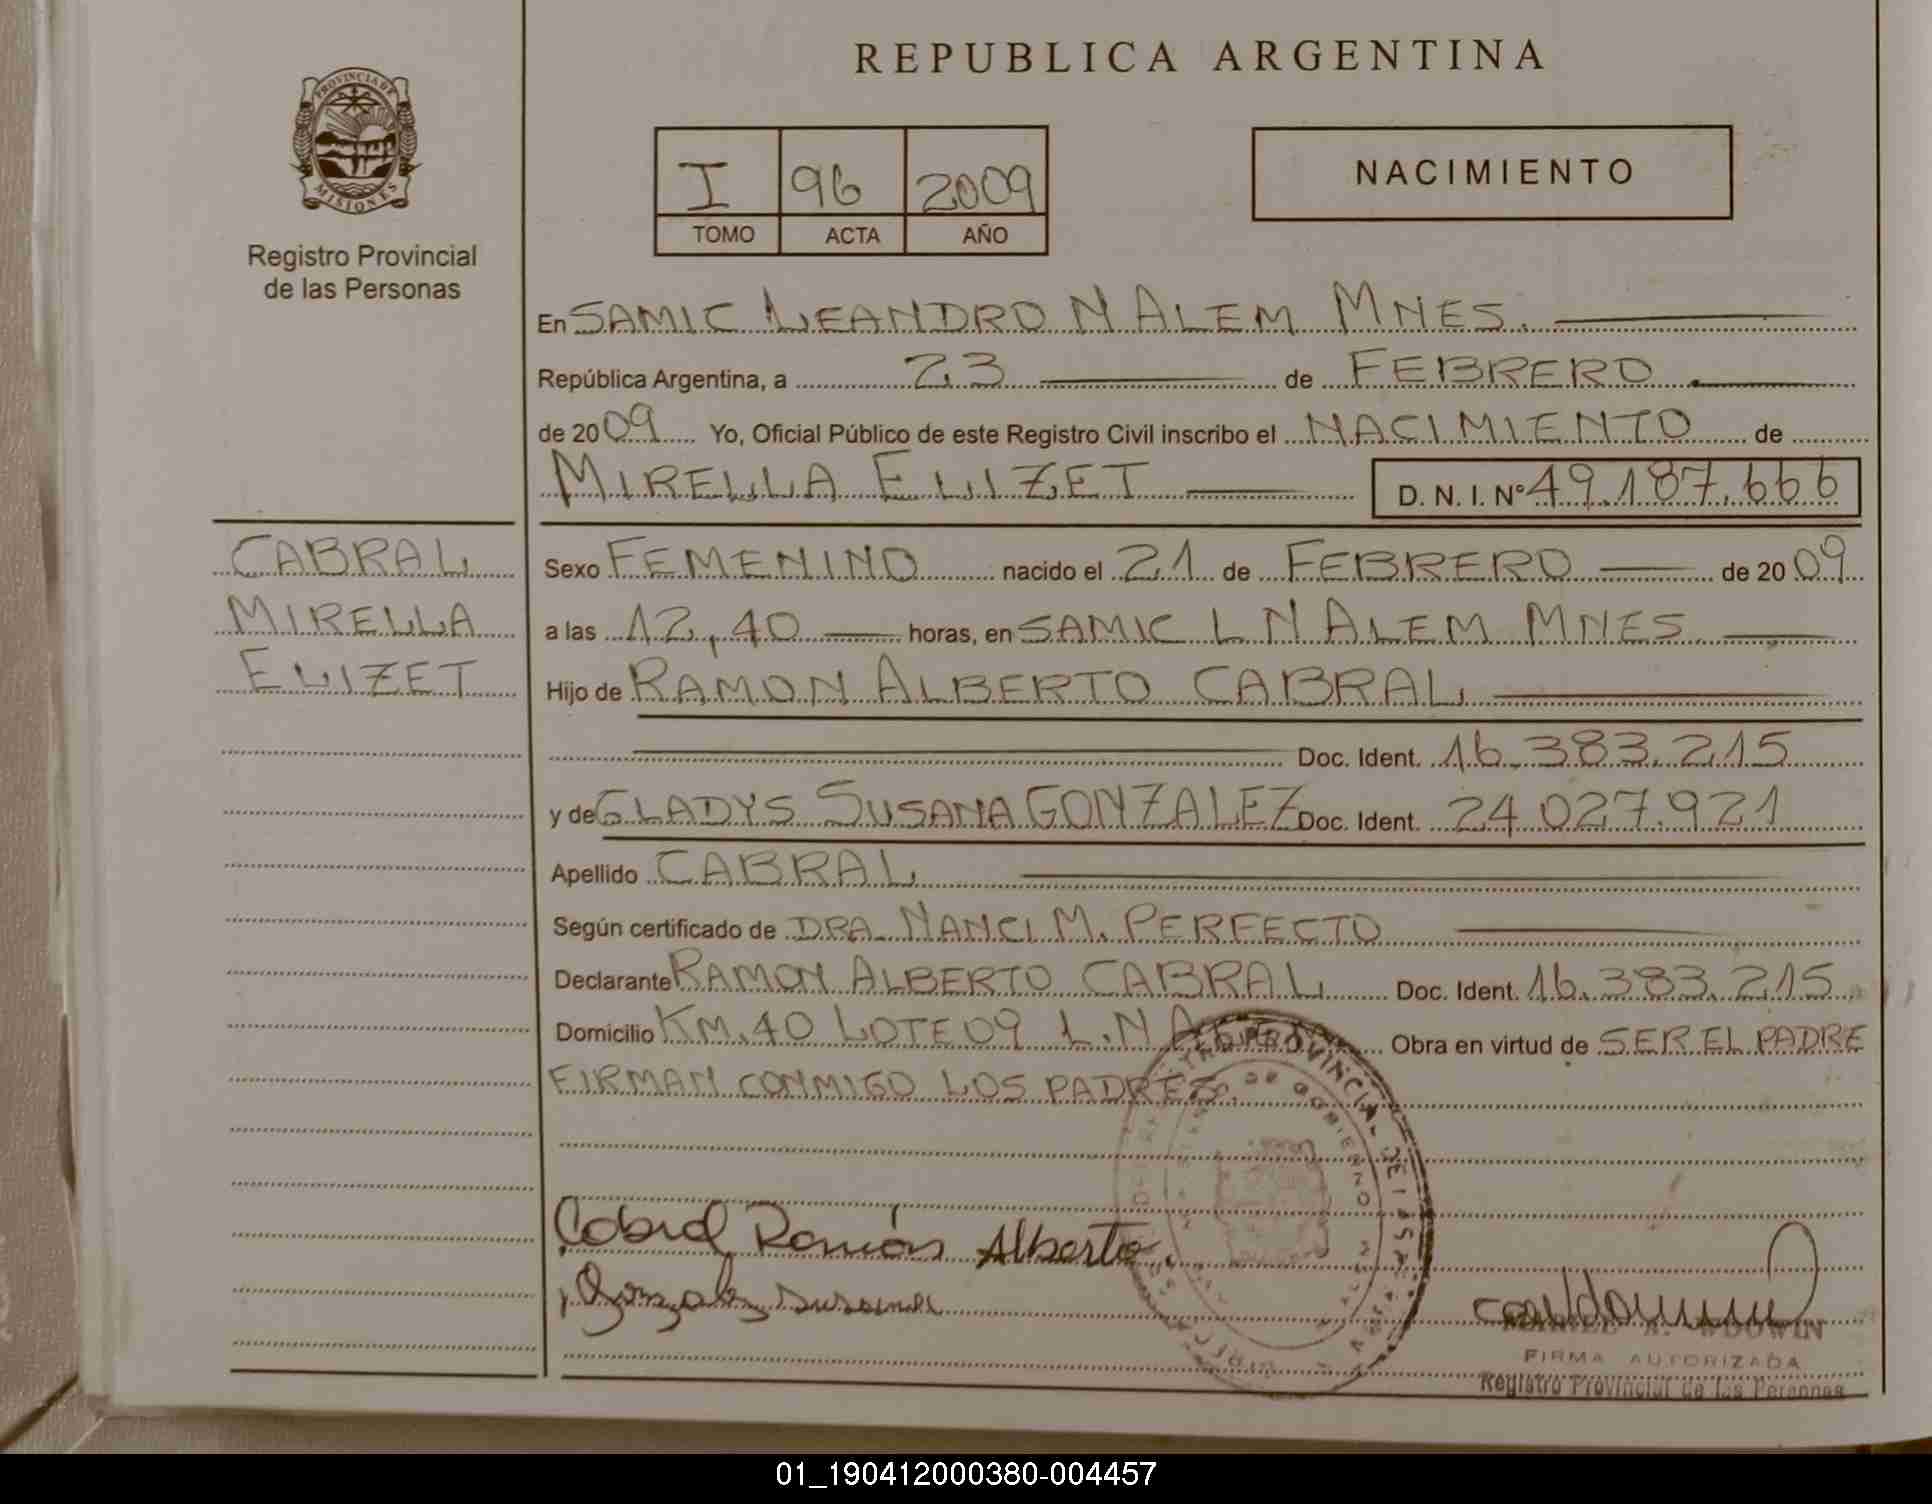 REPUBLICA ARGENTINA
PROVINCIA DE
MISIONES
Registro Provincial
de las Personas
I 96 2009
TOMO ACTA AÑO
NACIMIENTO
En SAMIC LEANDRO N ALEM MNES.
República Argentina, a 23 de FEBRERO
de 2009 Yo, Oficial Público de este Registro Civil inscribo el NACIMIENTO de
MIRELLA ELIZET D. N. I. Nº 49.187.666
CABRAL
MIRELLA
ELIZET
Sexo FEMENINO nacido el 21 de FEBRERO de 2009
a las 12,40 horas, en SAMIC L N ALEM MNES
Hijo de RAMON ALBERTO CABRAL
Doc. Ident. 16.383.215
y de GLADYS SUSANA GONZALEZ Doc. Ident. 24.027.921
Apellido CABRAL
Según certificado de DRA. NANCI M. PERFECTO
Declarante RAMON ALBERTO CABRAL Doc. Ident. 16.383.215
Domicilio KM. 40 LOTE 09 L.N A Obra en virtud de SER EL PADRE
FIRMAN CONMIGO LOS PADRES.
Cabral Ramón Alberto
Gonzalez Susana
FIRMA AUTORIZADA
Registro Provincial de las Personas
01_190412000380-004457